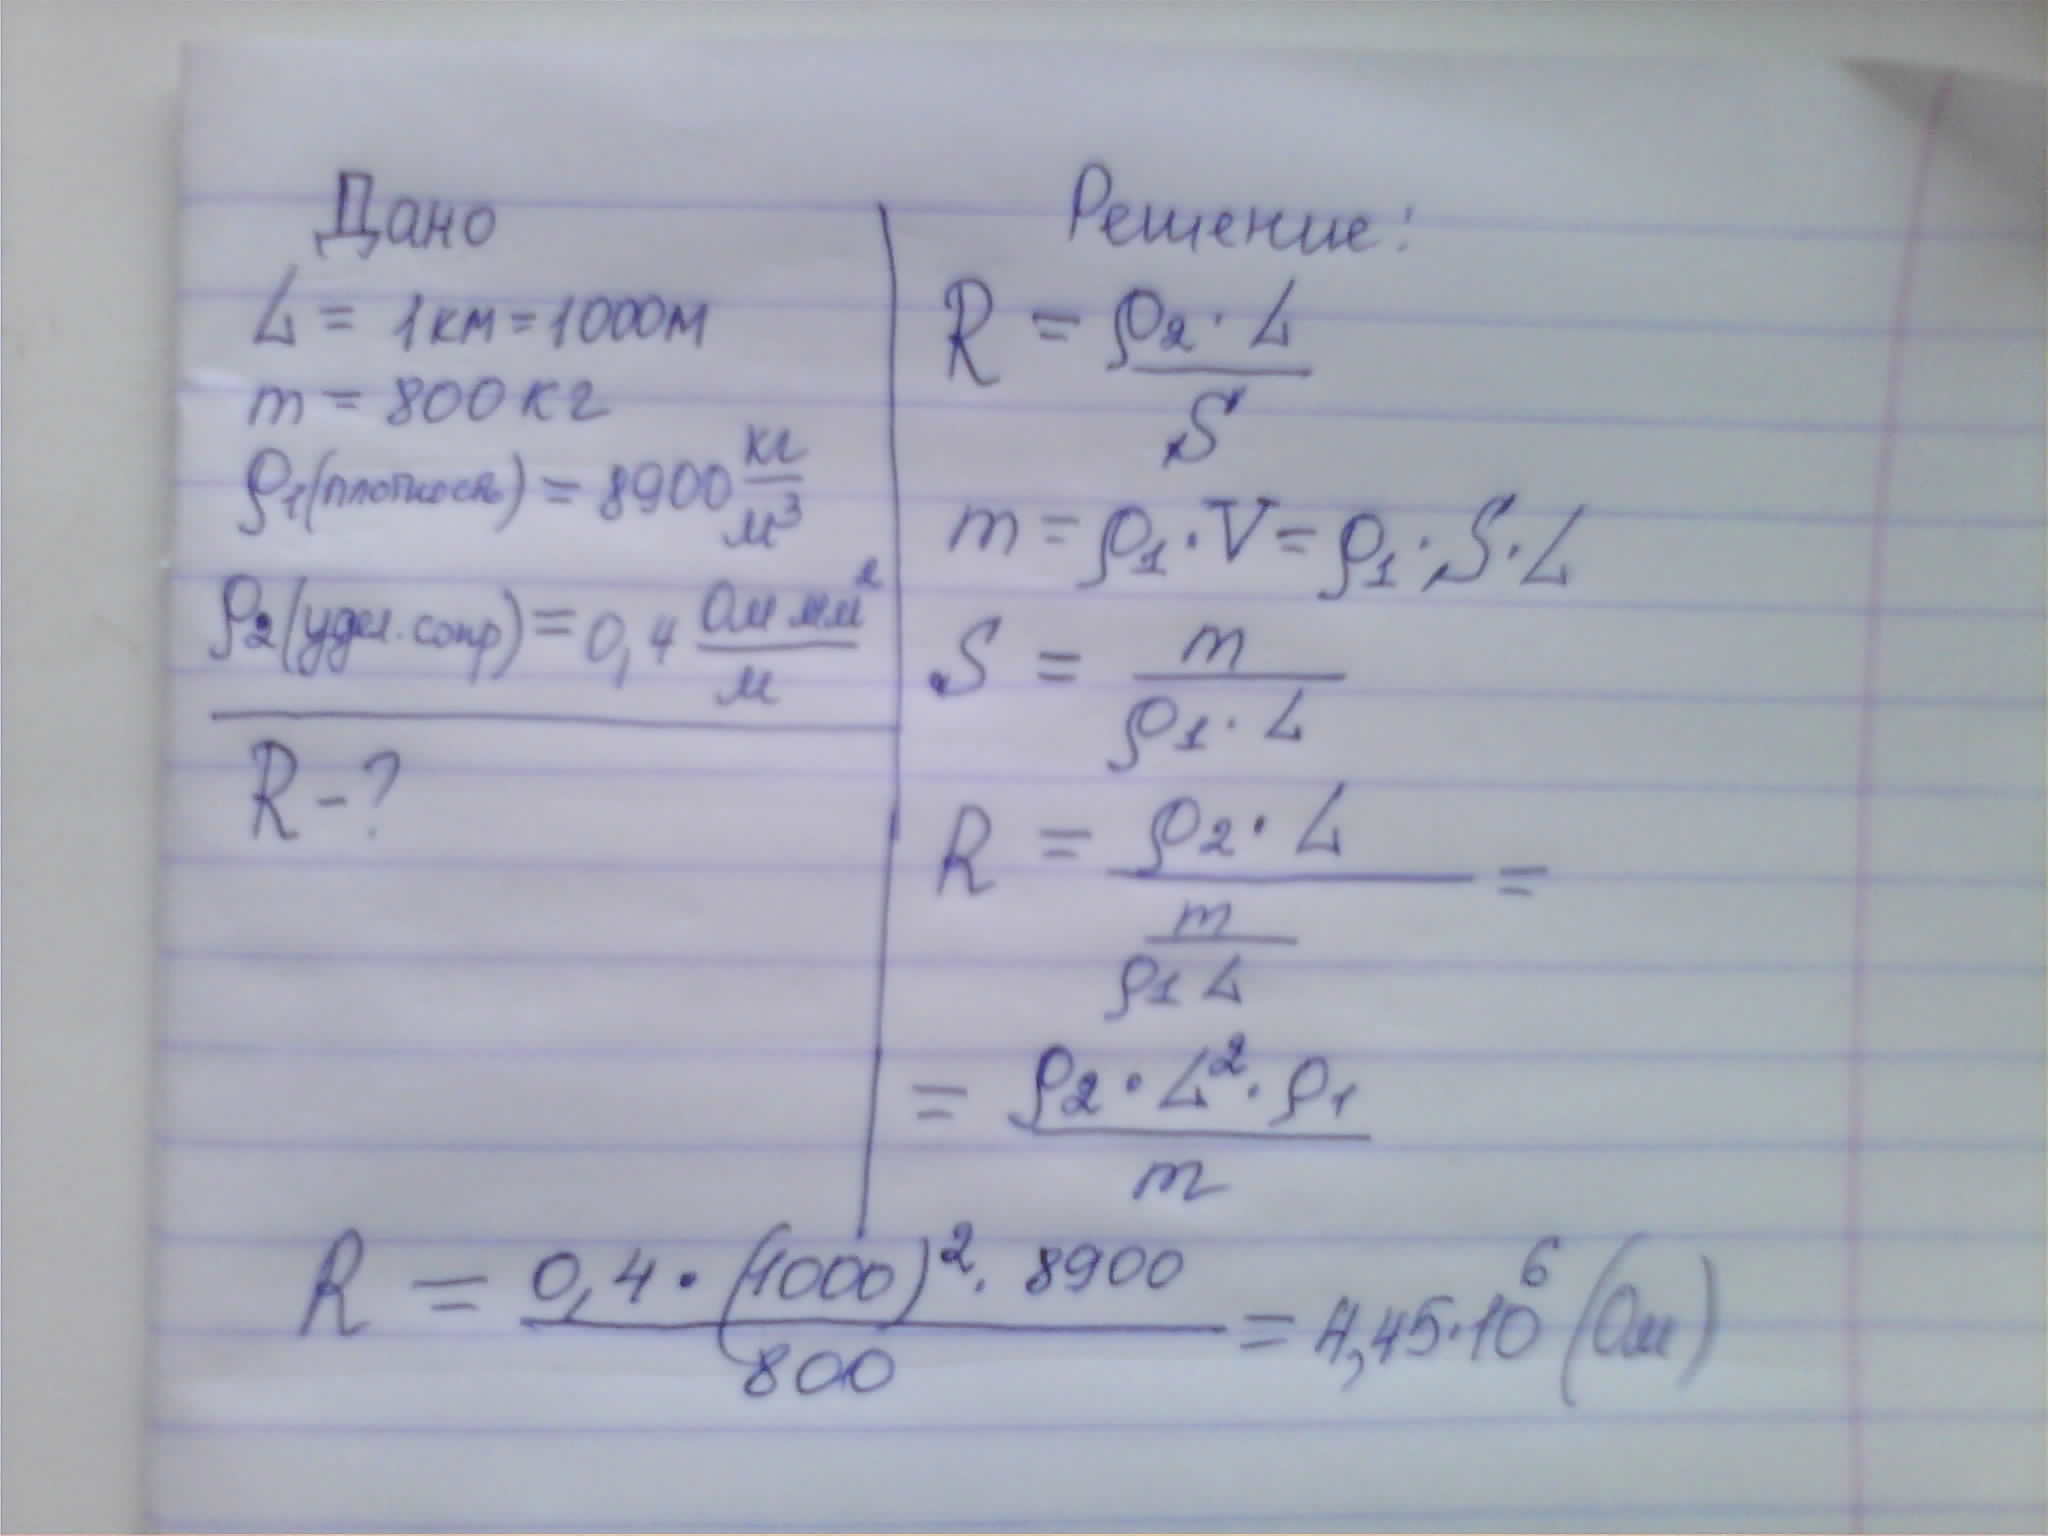 Дано
L = 1км = 1000м
m = 800 кг
ρ₁(плотность) = 8900 кг/м³
ρ₂(удел. сопр) = 0,4 Ом мм²/м
R - ?
Решение:
R = ρ₂ · L / S
m = ρ₁ · V = ρ₁ · S · L
S = m / ρ₁ · L
R = ρ₂ · L / (m / ρ₁ L) =
= ρ₂ · L² · ρ₁ / m
R = 0,4 · (1000)² · 8900 / 800 = 4,45 · 10⁶ (Ом)